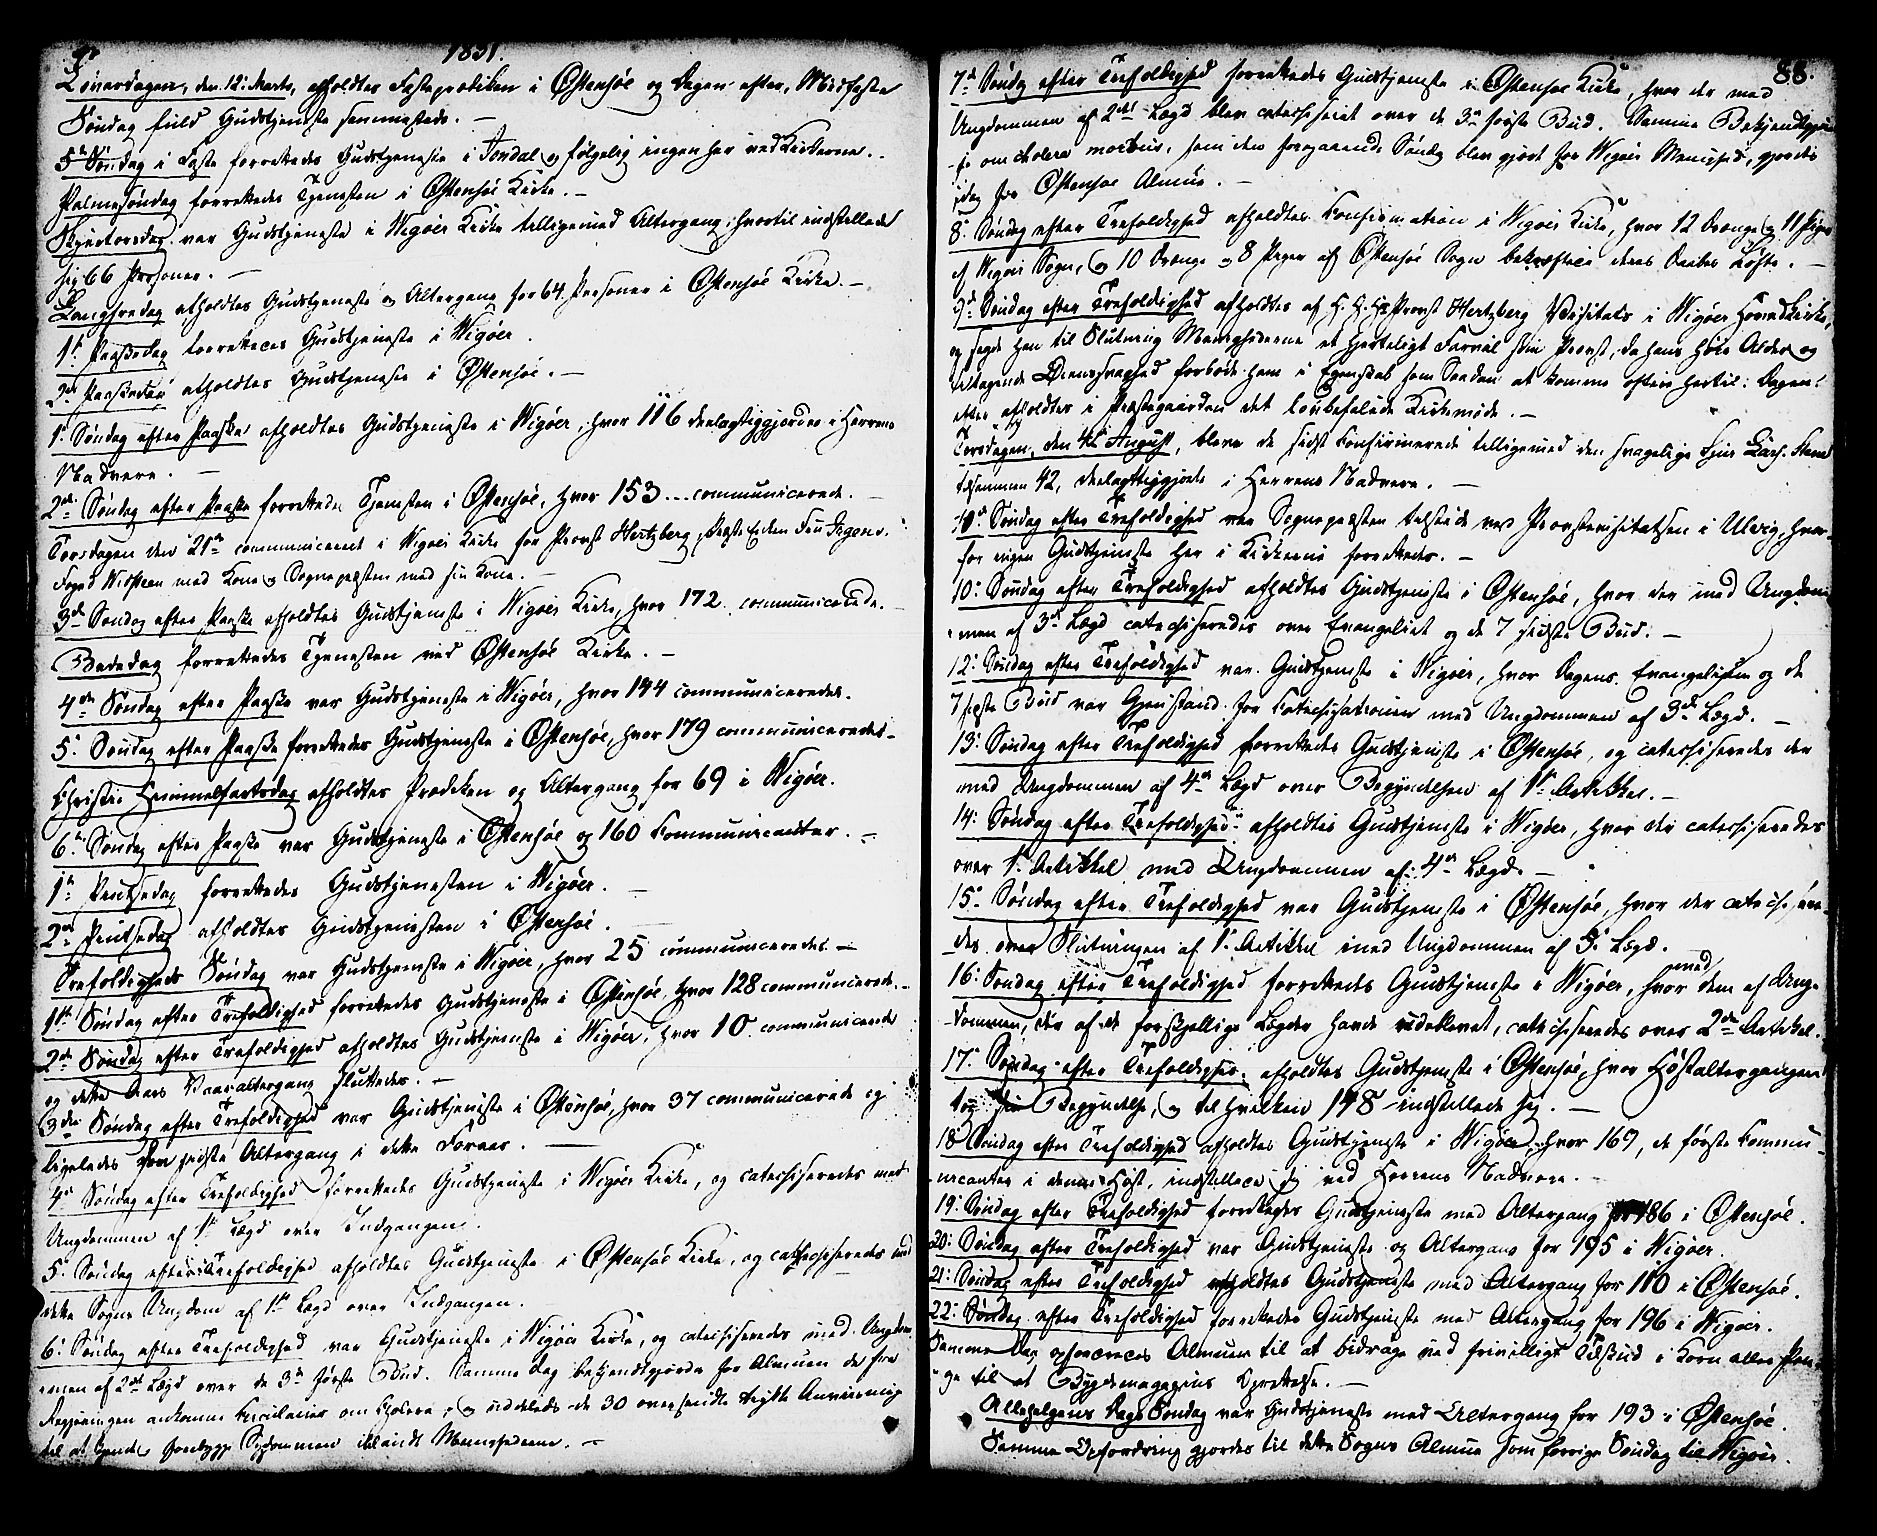 1831.
Løverdagen, den 12te Marts, afholdtes Fasteprædiken i Østensøe og Dagen efter, Midfaste
Søndag fuld Gudstjeneste sammesteds. –
5te Søndag i Faste forrettedes Gudstjeneste i Jondal og følgelig ingen her ved Kirkerne. –
Palmesøndag forrettedes Tjenesten i Østensøe Kirke. –
Skjærtorsdag var Gudstjeneste i Wigøer Kirke tilligemed Altergang, hvortil indstillede
sig 66 Personer. –
Langfredag afholdtes Gudstjeneste og Altergang for 64 Personer i Østensøe Kirke. –
1ste Paaskedag forrettedes Gudstjeneste i Wigøer.
2den Paaskedag afholdtes Gudstjeneste i Østensøe. –
1ste Søndag efter Paaske afholdtes Gudstjeneste i Wigøer, hvor 116 deelagtiggjordes i Herrens
Nadvere. –
2den Søndag efter Paaske forrettedes Tjenesten i Østensøe, hvor 153 communicerede. –
Torsdagen den 21de communicerede i Wigøer Kirke for Provst Hertzberg, Fru
Foged med Kone og Sognepræsten med sin Kone. –
3die Søndag efter Paaske afholdtes Gudstjeneste i Wigøer Kirke, hvor 172 communicerede. –
Bededag forrettedes Tjenesten ved Østensøe Kirke. –
4de Søndag efter Paaske var Gudstjeneste i Wigøer, hvor 144 communicerede. –
5te Søndag efter Paaske forrettedes Gudstjeneste i Østensøe, hvor 179 communicerede. –
Christi Himmelfartsdag afholdtes Prædiken og Altergang for 69 i Wigøer.
6te Søndag efter Paaske var Gudstjeneste i Østensøe og 160 Communicanter. –
1ste Pintsedag forrettedes Gudstjenesten i Wigøer. –
2den Pintsedag afholdtes Gudstjenesten i Østensøe. –
Trefoldigheds Søndag var Gudstjeneste i Wigøer, hvor 25 communicerede –
1ste Søndag efter Trefoldighed forrettedes Gudstjeneste i Østensøe, hvor 128 communicerede. –
2den Søndag efter Trefoldighed afholdtes Gudstjeneste i Wigøer, hvor 10 communicerede
og dette Aars Vaaraltergang sluttedes. –
3die Søndag efter Trefoldighed var Gudstjeneste i Østensøe, hvor 37 communicerede og
ligeledes sidste Altergang i dette Foraar. –
4de Søndag efter Trefoldighed forrettedes Gudstjeneste i Wigøer Kirke, og catechiseredes med
Ungdommen af 1ste Lægd over Indgangen.
5te Søndag efter Trefoldighed afholdtes Gudstjeneste i Østensøe Kirke, og catechiseredes med
dette Sogns Ungdom af 1ste Lægd over Indgangen.
6te Søndag efter Trefoldighed var Gudstjeneste i Wigøer Kirke, og catechiseredes med Ungdom-
men af 2det Lægd over de 3de første Bud. Samme Dag bekjendtgjordes for Almuen de fra
Regjeringen ankomne Circulairer om Cholera, og uddeeltes de 30 oversendte trykte Anviisning
til at forebygge Sygdommen iblandt Menighederne. –
88.
7de Søndag efter Trefoldighed forrettedes Gudstjeneste i Østensøe Kirke, hvor der med
Ungdommen af 2det Lægd blev catechiseret over de 3de første Bud. Samme Bekjendtgjørel-
se om cholera morbus, som den foregaaende Søndag blev gjort for Wigøers Menighed, gjordes
idag for Østensøe Almue. –
8de Søndag efter Trefoldighed afholdtes Confirmation i Wigøer Kirke, hvor 12 Drenge og 11 Piger
af Wigøer Sogn, og 10 Drenge og 8 Piger af Østensøe Sogn bekræftede deres Daabes Løfte. –
9de Søndag efter Trefoldighed afholdtes af Hr. Provst Hertzberg Visitats i Wigøer Hovedkirke,
og sagde han til Slutning Menighederne et hjerteligt Farvel som Provst, da hans høie Alder og
tiltagende Øiensvaghed forbøde ham i Egenskab som Saadan at komme oftere hertil. Dagen
efter afholdtes i Præstegaarden det lovbefalede Kirkemøde. –
Torsdagen, den 4de August, bleve de sidst Confirmerede tilligemed den svagelige
tilsammen 42, deelagtiggjorte i Herrens Nadvere. –
10de Søndag efter Trefoldighed var Sognepræsten tilstede ved Provstevisitatsen i Ulvig, hvor-
for ingen Gudstjeneste her i Kirkerne forrettedes. –
10de Søndag efter Trefoldighed afholdtes Gudstjeneste i Østensøe, hvor der med Ungdom-
men af 3de Lægd catechiseredes over Evangeliet og de 7 sidste Bud. –
12te Søndag efter Trefoldighed var Gudstjeneste i Wigøer, hvor Dagens Evangelium og de
7 sidste Bud var Gjenstand for Catechisationen med Ungdommen af 3die Lægd. –
13de Søndag efter Trefoldighed forrettedes Gudstjeneste i Østensøe, og catechiseredes der
med Ungdommen af 4de Lægd over Begyndelsen af 1ste Artikkel. –
14de Søndag efter Trefoldighed afholdtes Gudstjeneste i Wigøer, hvor der catechiseredes
over 1ste Artikkel med Ungdommen af 4de Lægd. –
15de Søndag efter Trefoldighed var Gudstjeneste i Østensøe, hvor der catechisere-
des over Slutningen af 1ste Artikkel med Ungdommen af 5te Lægd.
16de Søndag efter Trefoldighed forrettedes Gudstjeneste i Wigøer, hvor med dem af Ung-
dommen, der af de forskjellige Lægder havde udeblevet, catechiseredes over 2den Artikel.
17de Søndag efter Trefoldighed afholdtes Gudstjeneste i Østensøe, hvor Høstaltergangen
tog sin Begyndelse, og til hvilken 148 indstillede sig. –
18de Søndag efter Trefoldighed afholdtes Gudstjeneste i Wigøer, hvor 169, de første Commu-
nicanter i denne Høst, indstillede sig ved Herrens Nadvere. –
19de Søndag efter Trefoldighed forrettedes Gudstjeneste med Altergang for 186 i Østensøe.
20de Søndag efter Trefoldighed var Gudstjeneste og Altergang for 195 i Wigøer.
21de Søndag efter Trefoldighed afholdtes Gudstjeneste med Altergang for 110 i Østensøe.
22de Søndag efter Trefoldighed forrettedes Gudstjeneste med Altergang for 196 i Wigøer.
Samme Dag opfordredes Almuen til at bidrage ved frivilligt Tilskud i Korn eller Pen-
ge til et Bygdemagazins Oprettelse. –
Allehelgens Dags Søndag var Gudstjeneste med Altergang for 193 i Østensøe.
Samme Opfordring gjordes til dette Sogns Almue som forrige Søndag til Wigøers.